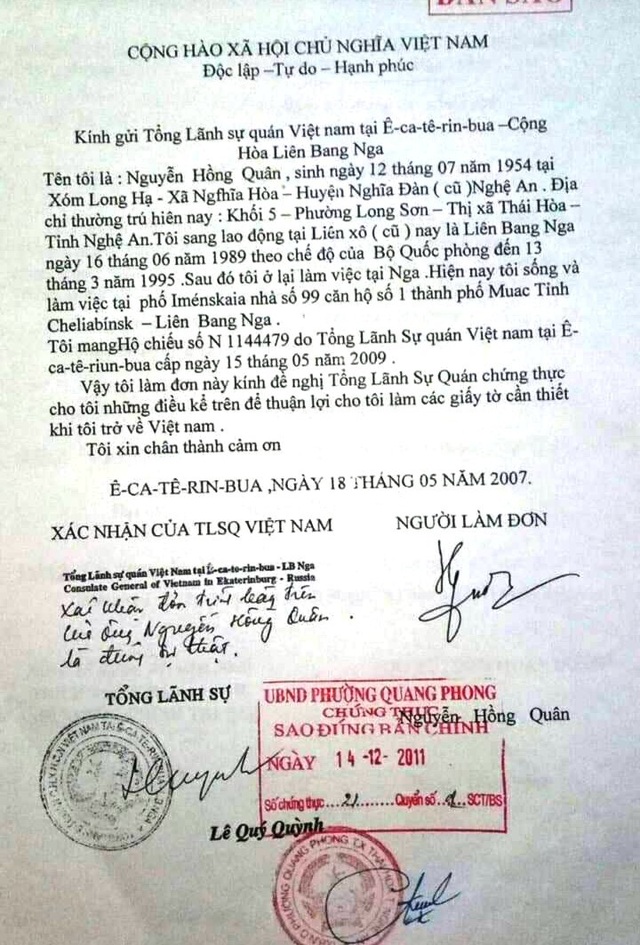 BẢN SAO
CỘNG HÀO XÃ HỘI CHỦ NGHĨA VIỆT NAM
Độc lập –Tự do – Hạnh phúc
Kính gửi Tổng Lãnh sự quán Việt nam tại Ê-ca-tê-rin-bua –Cộng
Hòa Liên Bang Nga
Tên tôi là : Nguyễn Hồng Quân , sinh ngày 12 tháng 07 năm 1954 tại
Xóm Long Hạ - Xã Ngfhĩa Hòa – Huyện Nghĩa Đàn ( cũ )Nghệ An . Địa
chỉ thường trú hiên nay : Khối 5 – Phường Long Sơn – Thị xã Thái Hòa –
Tỉnh Nghệ An.Tôi sang lao động tại Liên xô ( cũ ) nay là Liên Bang Nga
ngày 16 tháng 06 năm 1989 theo chế độ của Bộ Quốc phòng đến 13
tháng 3 năm 1995 .Sau đó tôi ở lại làm việc tại Nga .Hiện nay tôi sống và
làm việc tại phố Iménskaia nhà số 99 căn hộ số 1 thành phố Muac Tỉnh
Cheliabínsk – Liên Bang Nga .
Tôi mangHộ chiếu số N 1144479 do Tổng Lãnh Sự quán Việt nam tại Ê-
ca-tê-riun-bua cấp ngày 15 tháng 05 năm 2009 .
Vậy tôi làm đơn này kính đề nghị Tổng Lãnh Sự Quán chứng thực
cho tôi những điều kể trên để thuận lợi cho tôi làm các giấy tờ cần thiết
khi tôi trở về Việt nam .
Tôi xin chân thành cảm ơn
Ê-CA-TÊ-RIN-BUA ,NGÀY 18 THÁNG 05 NĂM 2007.
XÁC NHẬN CỦA TLSQ VIỆT NAM
NGƯỜI LÀM ĐƠN
Tổng Lãnh sự quán Việt Nam tại Ê-ca-to-rin-bua - LB Nga
Consulate General of Vietnam in Ekaterinburg - Russia
Xác nhận đơn trình bày trên
của ông Nguyễn Hồng Quân .
là đúng sự thật.
TỔNG LÃNH SỰ
UBND PHƯỜNG QUANG PHONG
CHỨNG THỰC
Nguyễn Hồng Quân
SAO ĐÚNG BẢN CHÍNH
NGÀY 14 -12- 2011
Số chứng thực ...21........Quyển số .... SCT/BS
Lê Quý Quỳnh